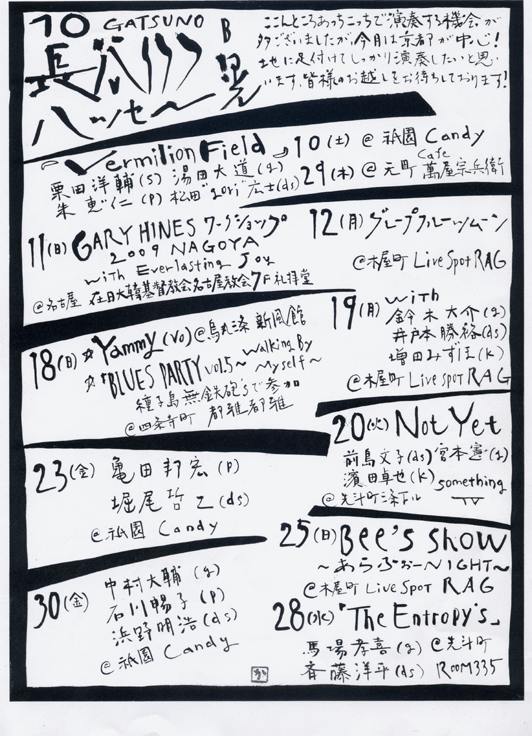 10 GATSUNO
B
長谷川
晃
ハッセ〜
ここんところあっちこっちで演奏する機会が
多ございましたが、今月は京都が中心!
地に足付けてしっかり演奏したいと思
います。皆様のお越しをお待ちしております!
Vermilion Field
10(土) @ 祇園 Candy
29(木) @ 元町 Cafe 萬屋宗兵衛
栗田洋輔(s) 湯田大道(g)
朱 恵仁(p) 松田"gori"広士(ds)
11(日) GARY HINES ワークショップ
2009 NAGOYA
with Everlasting Joy
@名古屋 在日大韓基督教会名古屋教会7F礼拝堂
12(月) グレープフルーツムーン
@木屋町 Live Spot RAG
18(日) ☆ Yammy(vo) @烏丸 新風館
☆「BLUES PARTY vol.5 〜Walking By Myself〜
種子島無鉄砲's で参加
@四条寺町 都雅都雅
19(月) with
鈴木大介(g)
井戸本勝裕(ds)
増田みずほ(k)
@木屋町 Live Spot RAG
20(火) Not Yet
前島文子(ds) 宮本憲(g)
濱田卓也(k)
@先斗町 something
23(金) 亀田邦宏(p)
堀尾哲乙(ds)
@祇園 Candy
25(日) Bee's Show
〜あらぶぉーNIGHT〜
@木屋町 Live Spot RAG
28(水)「The Entropy's」
馬場孝喜(g) @先斗町
斉藤洋平(ds) ROOM335
30(金) 中村大輔(g)
石川暢子(p)
浜野明浩(ds)
@祇園 Candy
か